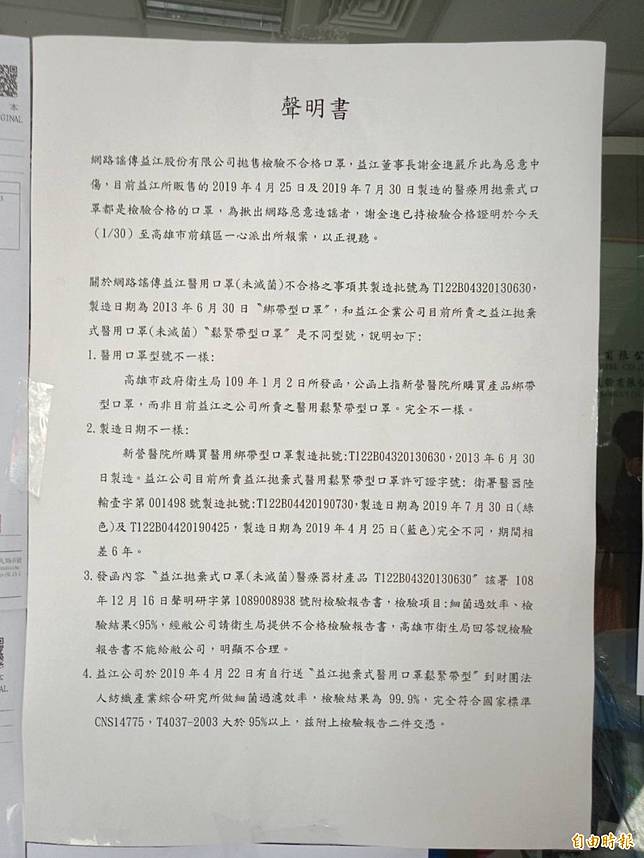 聲明書
網路謠傳益江股份有限公司拋售檢驗不合格口罩,益江董事長謝金進嚴斥此為惡意中
傷,目前益江所販售的 2019 年 4 月 25 日及 2019 年 7 月 30 日製造的醫療用拋棄式口
罩都是檢驗合格的口罩,為揪出網路惡意造謠者,謝金進已持檢驗合格證明於今天
(1/30)至高雄市前鎮區一心派出所報案,以正視聽。
關於網路謠傳益江醫用口罩(未滅菌)不合格之事項其製造批號為 T122B04320130630,
製造日期為 2013 年 6 月 30 日〝綁帶型口罩〞,和益江企業公司目前所賣之益江拋棄
式醫用口罩(未滅菌)〝鬆緊帶型口罩〞是不同型號,說明如下:
1.醫用口罩型號不一樣:
高雄市政府衛生局 109 年 1 月 2 日所發函,公函上指新營醫院所購買產品綁帶
型口罩,而非目前益江之公司所賣之醫用鬆緊帶型口罩。完全不一樣。
2.製造日期不一樣:
新營醫院所購買醫用綁帶型口罩製造批號:T122B04320130630,2013 年 6 月 30
日製造。益江公司目前所賣益江拋棄式醫用鬆緊帶型口罩許可證字號: 衛署醫器陸
輸壹字第 001498 號製造批號:T122B04420190730,製造日期為 2019 年 7 月 30 日(綠
色)及 T122B04420190425,製造日期為 2019 年 4 月 25 日(藍色)完全不同,期間相
差 6 年。
3.發函內容〝益江拋棄式口罩(未滅菌)醫療器材產品 T122B04320130630〞該署 108
年 12 月 16 日聲明研字第 1089008938 號附檢驗報告書,檢驗項目:細菌過效率、檢
驗結果<95%,經敝公司請衛生局提供不合格檢驗報告書,高雄市衛生局回答說檢驗
報告書不能給敝公司,明顯不合理。
4.益江公司於 2019 年 4 月 22 日有自行送〝益江拋棄式醫用口罩鬆緊帶型〞到財團法
人紡織產業綜合研究所做細菌過濾效率,檢驗結果為 99.9%,完全符合國家標準
CNS14775,T4037-2003 大於 95%以上,茲附上檢驗報告二件交憑。
本
GINAL
自由時報